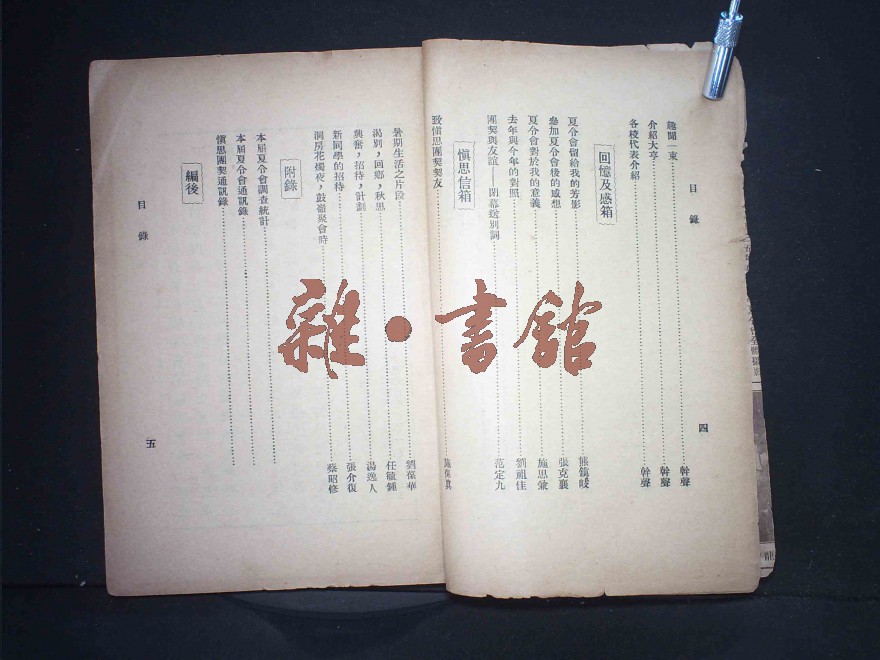 目錄
四
趣聞一束 幹聲
介紹大亨 幹聲
各校代表介紹 幹聲
回憶及感箱
夏令會留給我的芳影
參加夏令會後的感想 張克襄
夏令會對於我的意義 施思兼
去年與今年的對照 劉祖佳
團契與友誼——閉幕送別詞 范定九
慎思信箱
致慎思團契契友
暑期生活之片段 劉葆華
渴別，回鄉，秋思 任毓鍾
興奮，招待，計劃 湯逸人
新同學的招待 張介復
洞房花燭夜，鼓嶺聚會時 蔡昭修
附錄
本屆夏令會調查統計
本屆夏令會通訊錄
慎思團契通訊錄
編後
目錄
五
雜·書館